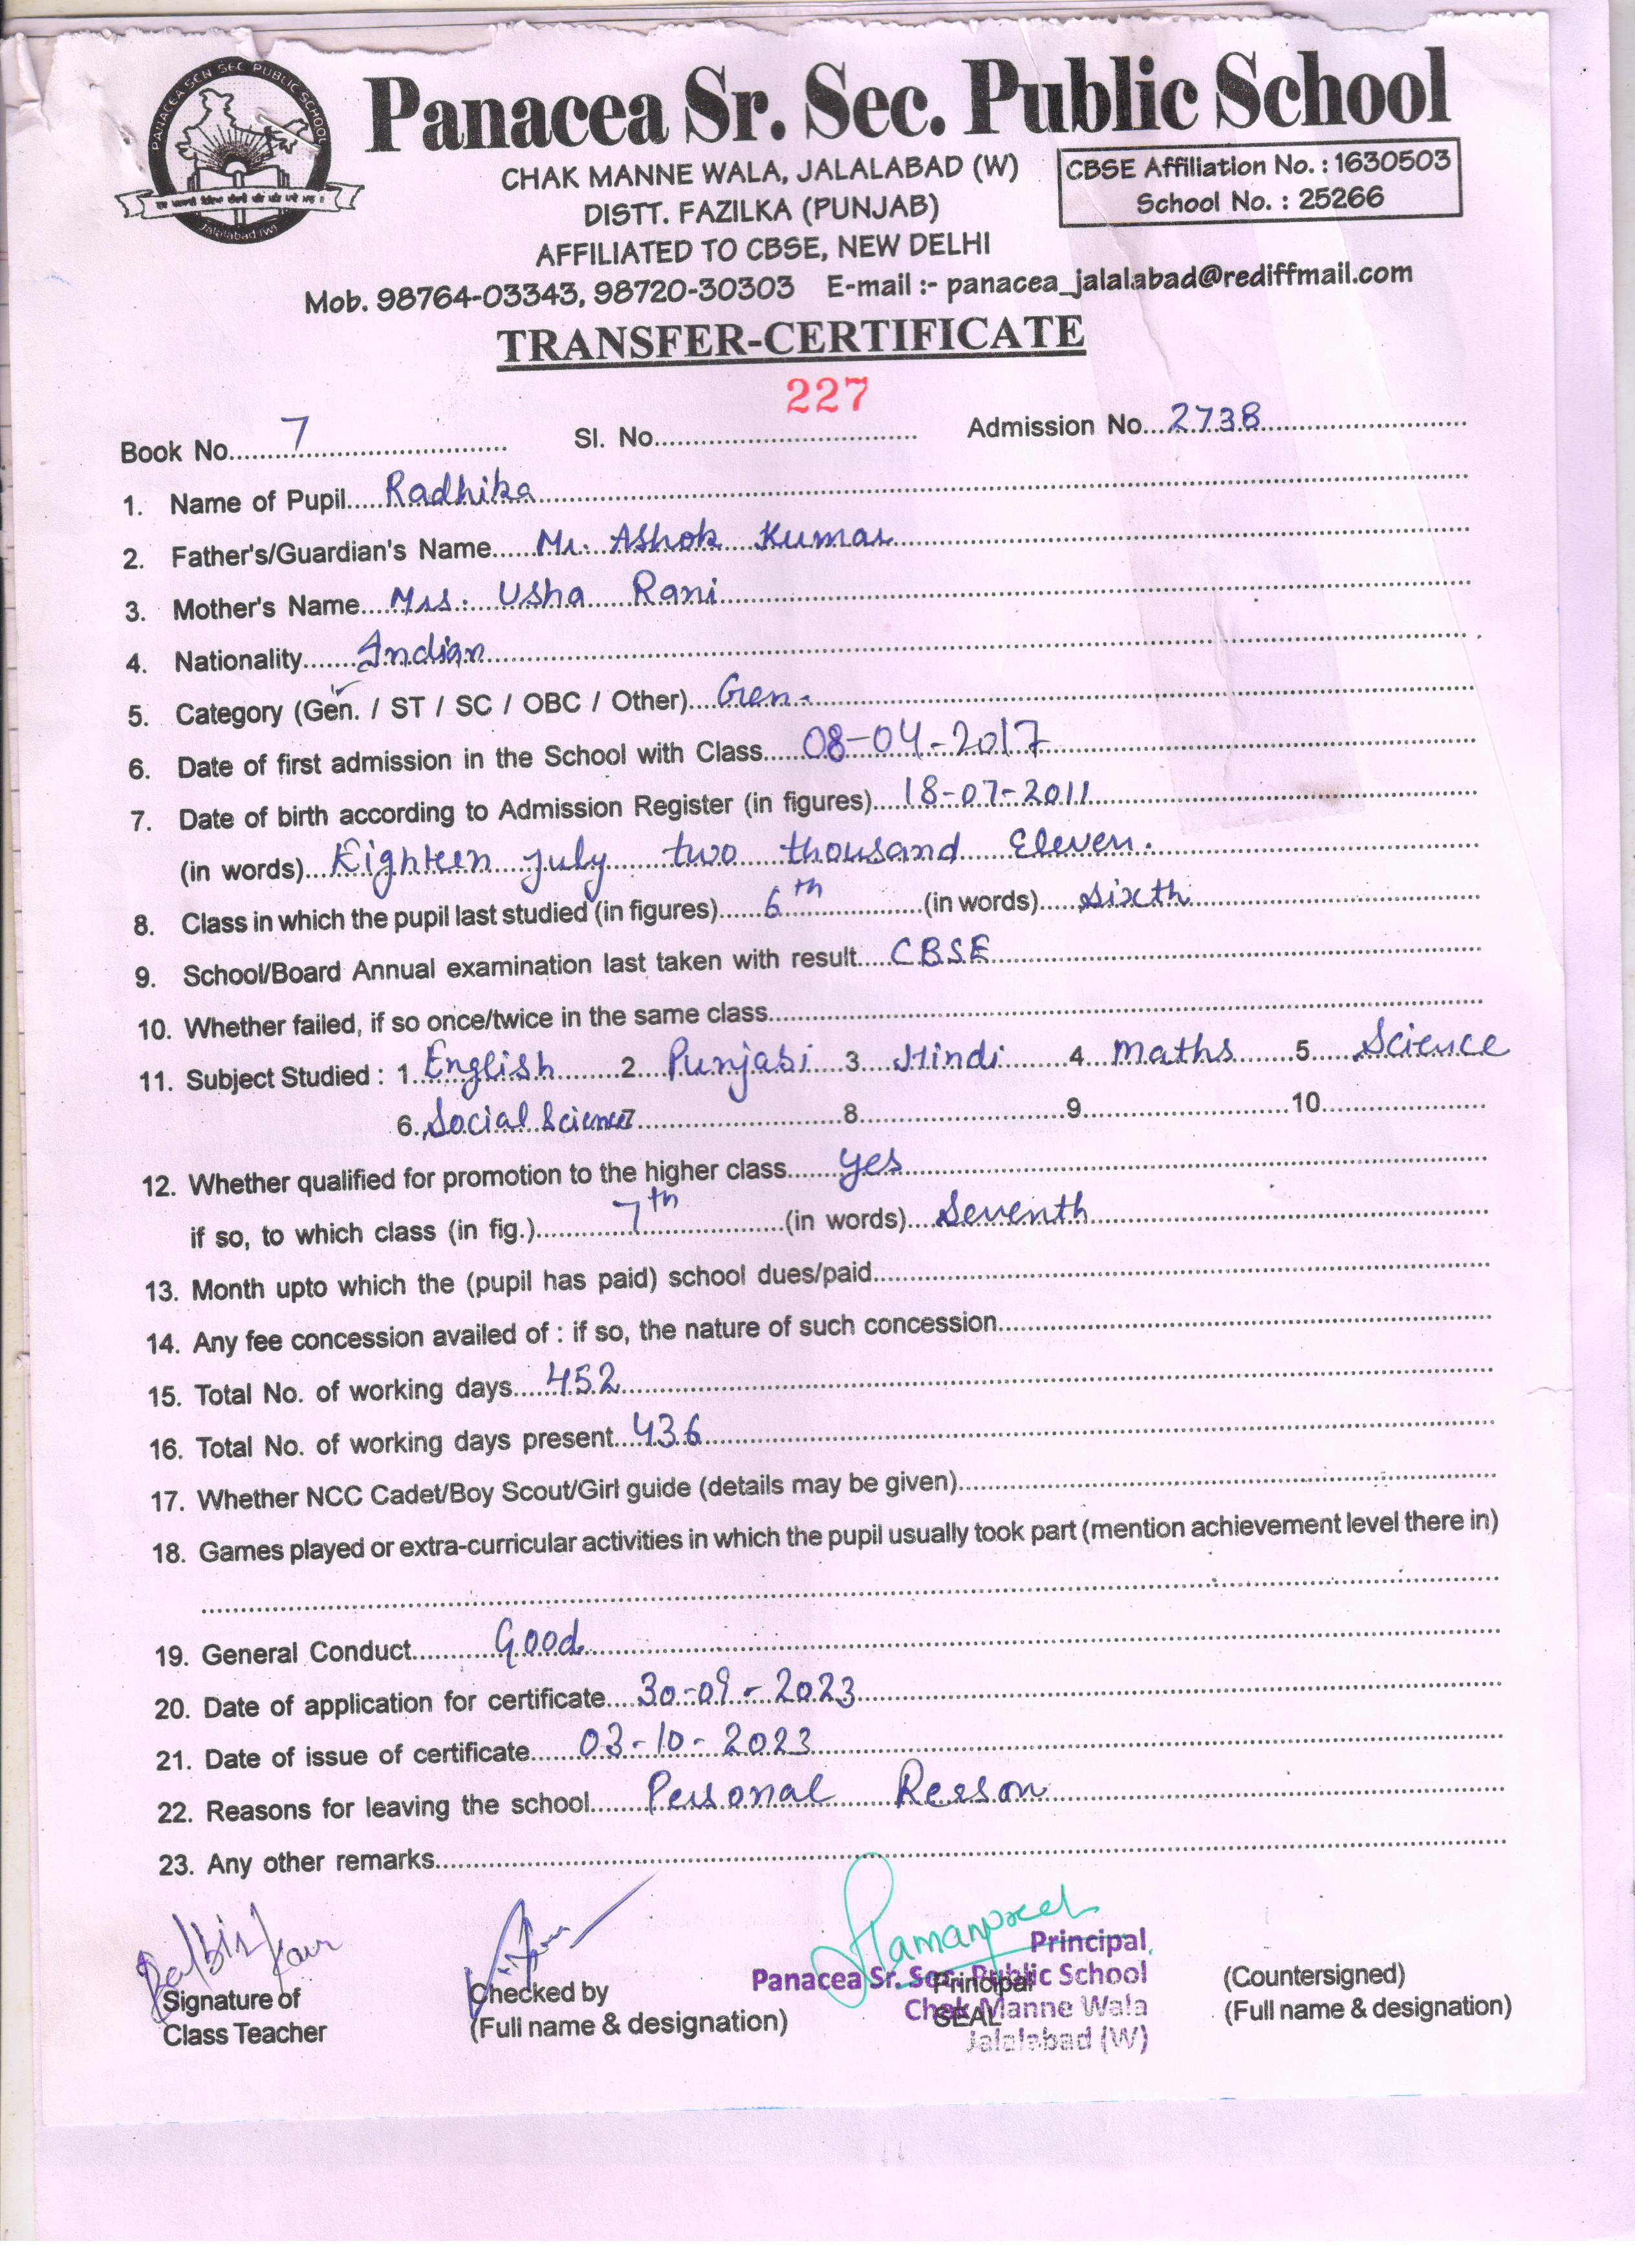 PANACEA SEN SEC PUBLIC SCHOOL
Jalalabad (W)
Panacea Sr. Sec. Public School
CHAK MANNE WALA, JALALABAD (W)
DISTT. FAZILKA (PUNJAB)
AFFILIATED TO CBSE, NEW DELHI
CBSE Affiliation No. : 1630503
School No. : 25266
Mob. 98764-03343, 98720-30303 E-mail :- panacea_jalalabad@rediffmail.com
TRANSFER-CERTIFICATE
227
Book No. 7 Sl. No. Admission No. 2738
1. Name of Pupil Radhika
2. Father's/Guardian's Name Mr. Ashok Kumar
3. Mother's Name Mrs. Usha Rani
4. Nationality Indian
5. Category (Gen. / ST / SC / OBC / Other) Gen.
6. Date of first admission in the School with Class 08-04-2017
7. Date of birth according to Admission Register (in figures) 18-07-2011
(in words) Eighteen july two thousand Eleven.
8. Class in which the pupil last studied (in figures) 6th (in words) sixth
9. School/Board Annual examination last taken with result CBSE
10. Whether failed, if so once/twice in the same class
11. Subject Studied : 1. English 2. Punjabi 3. Hindi 4. Maths 5. Science
6. Social Science 7 8 9 10
12. Whether qualified for promotion to the higher class yes
if so, to which class (in fig.) 7th (in words) Seventh
13. Month upto which the (pupil has paid) school dues/paid
14. Any fee concession availed of : if so, the nature of such concession
15. Total No. of working days 452
16. Total No. of working days present 436
17. Whether NCC Cadet/Boy Scout/Girl guide (details may be given)
18. Games played or extra-curricular activities in which the pupil usually took part (mention achievement level there in)
19. General Conduct Good
20. Date of application for certificate 30-09-2023
21. Date of issue of certificate 03-10-2023
22. Reasons for leaving the school Personal Reeson
23. Any other remarks
Balbir Kaur
Signature of
Class Teacher
Checked by
(Full name & designation)
Ramanpreet
Principal
Panacea Sr. Sec. Public School
Chak Manne Wala
Jalalabad (W)
Principal
SEAL
(Countersigned)
(Full name & designation)